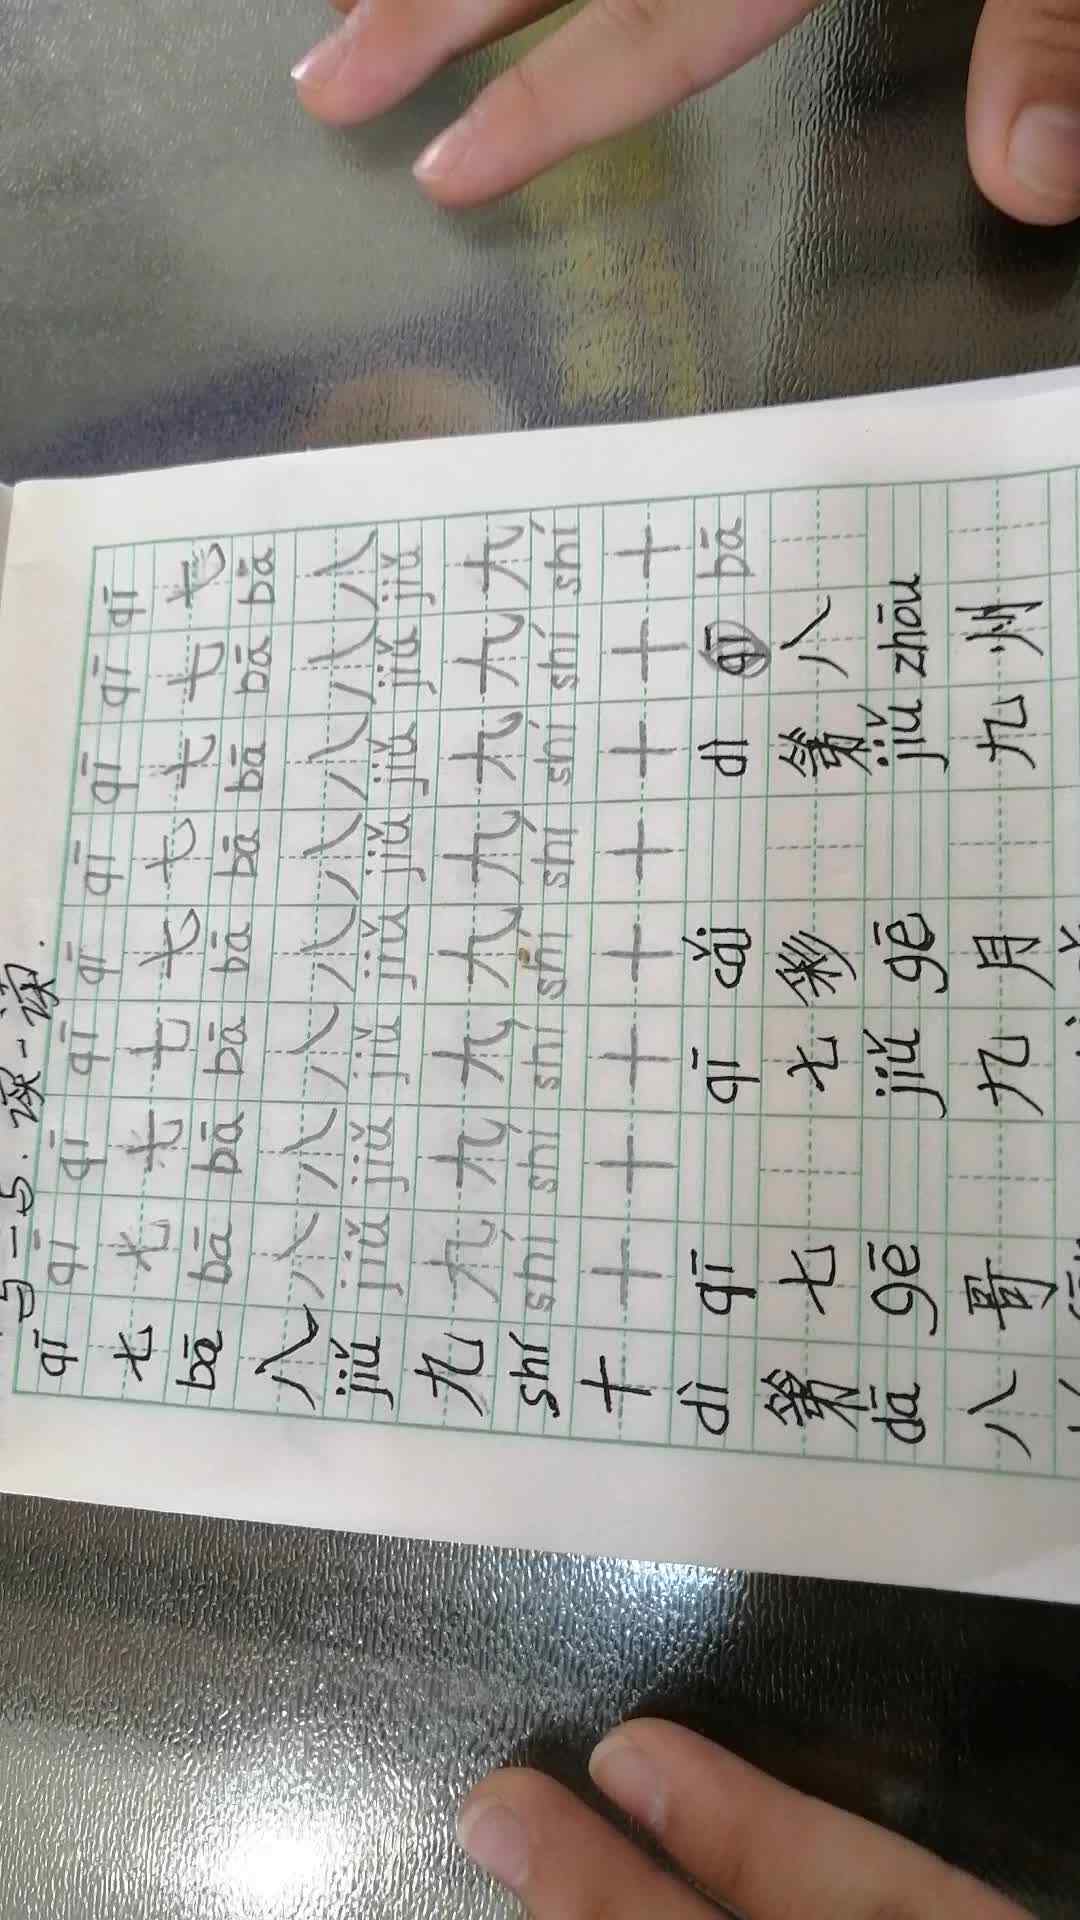 读一读.
qī qī qī qī qī qī qī qī qī
七 七 七 七 七 七 七 七 七
bā bā bā bā bā bā bā bā bā
八 八 八 八 八 八 八 八 八
jiǔ jiǔ jiǔ jiǔ jiǔ jiǔ jiǔ jiǔ jiǔ
九 九 九 九 九 九 九 九 九
shí shí shí shí shí shí shí shí shí
十 十 十 十 十 十 十 十 十
dì qī qī cǎi dì qī bā
第 七 七 彩 第 八
dā gē jiǔ gē jiǔ zhōu
八 哥 九 月 九 州